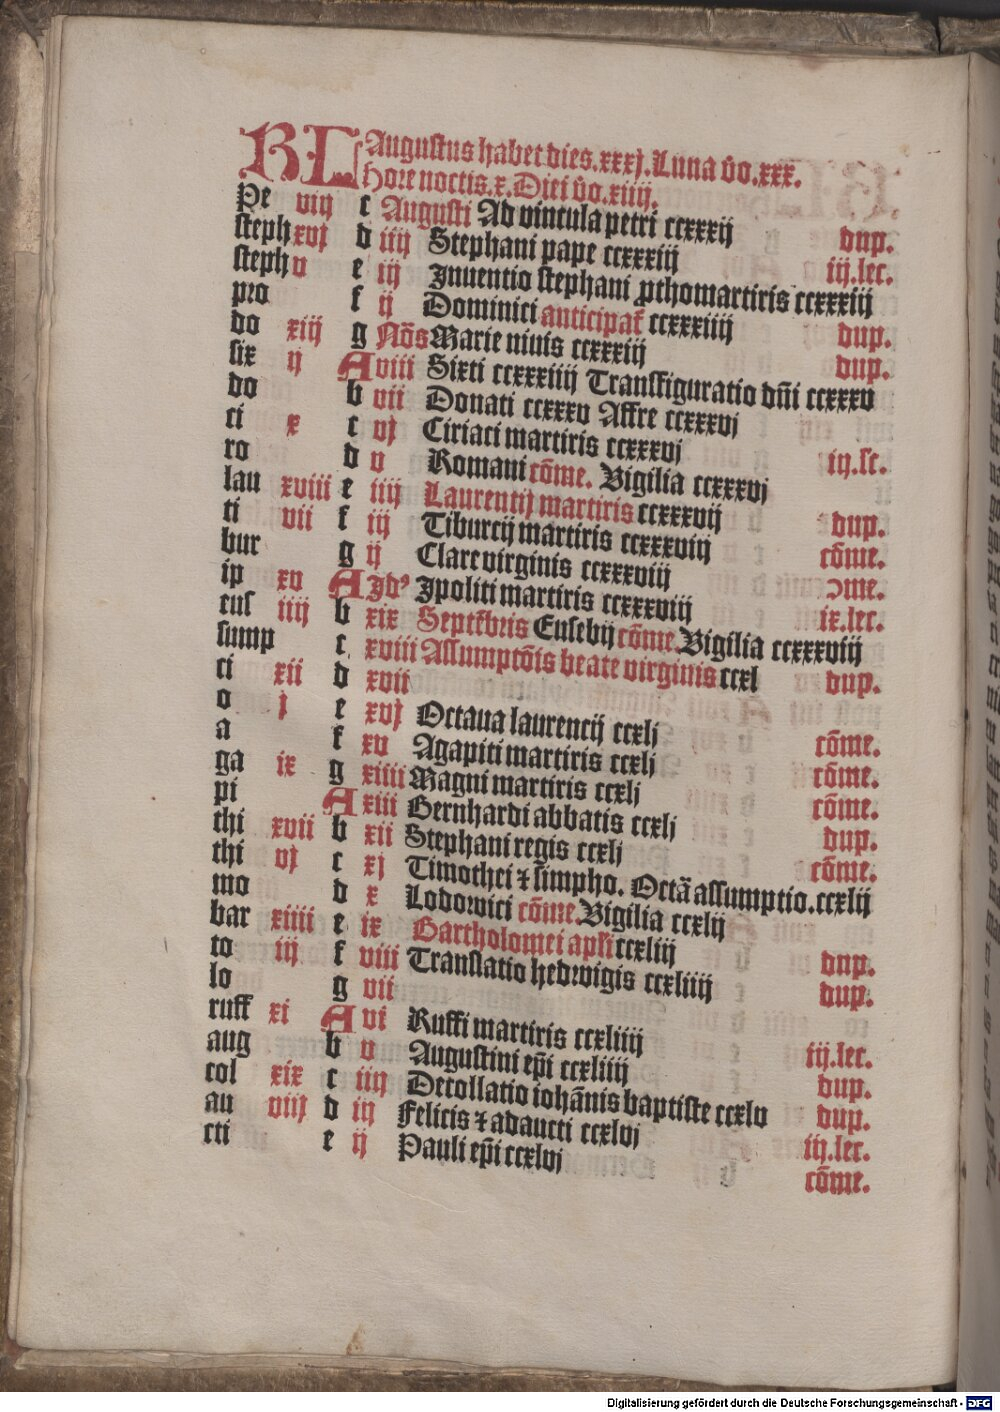 KL Augustus habet dies.xxxj.Luna v̄o.xxx.
Hore noctis.x.Diei v̄o.xiiij.
Pe viij c Augusti Ad vincula petri ccxxxij dup.
steph xvj d iiij Stephani pape ccxxxiij iij.lec.
steph v e iij Inuentio stephani ꝓthomartiris ccxxxiij
pro f ij Dominici anticipaꝉ ccxxxiiij dup.
do xiij g Nōs Marie niuis ccxxxiij dup.
six ij A viii Sixti ccxxxiiij Transfiguratio dn̄i ccxxxv
do b vii Donati ccxxxv Affre ccxxxvj
ci x c vj Ciriaci martiris ccxxxvj iij.lc.
ro d v Romani cōme. Vigilia ccxxxvj
lau xviii e iiij Laurentij martiris ccxxxvij dup.
ti vii f iij Tiburcij martiris ccxxxviij cōme.
bur g ij Clare virginis ccxxxviij ɔme.
ip xv A Jdꝰ Ipoliti martiris ccxxxviij ix.lec.
eus iiij b xix Septēbris Eusebij cōme.Vigilia ccxxxviij
sump c xviii Assumptōis beate virginis ccxl dup.
ci xii d xvii
o j e xvj Octaua laurencij ccxlj cōme.
a f xv Agapiti martiris ccxlj cōme.
ga ix g xiiii Magni martiris ccxlj cōme.
pi A xiii Bernhardi abbatis ccxlj dup.
thi xvii b xii Stephani regis ccxlj cōme.
thi vj c xj Timothei ⁊ simpho. Octā assumptio.ccxlij
mo d x Lodowici cōme.Vigilia ccxlij
bar xiiii e ix Bartholomei apl̄i ccxliij dup.
to iij f viii Translatio hedwigis ccxliiij dup.
lo g vii
ruff xi A vi Ruffi martiris ccxliiij iij.lec.
aug b v Augustini ep̄i ccxliiij dup.
col xix c iiij Decollatio iohānis baptiste ccxlv dup.
au viij d iij Felicis ⁊ adaucti ccxlvj iij.lec.
cti e ij Pauli ep̄i ccxlvj cōme.
Digitalisierung gefördert durch die Deutsche Forschungsgemeinschaft - DFG